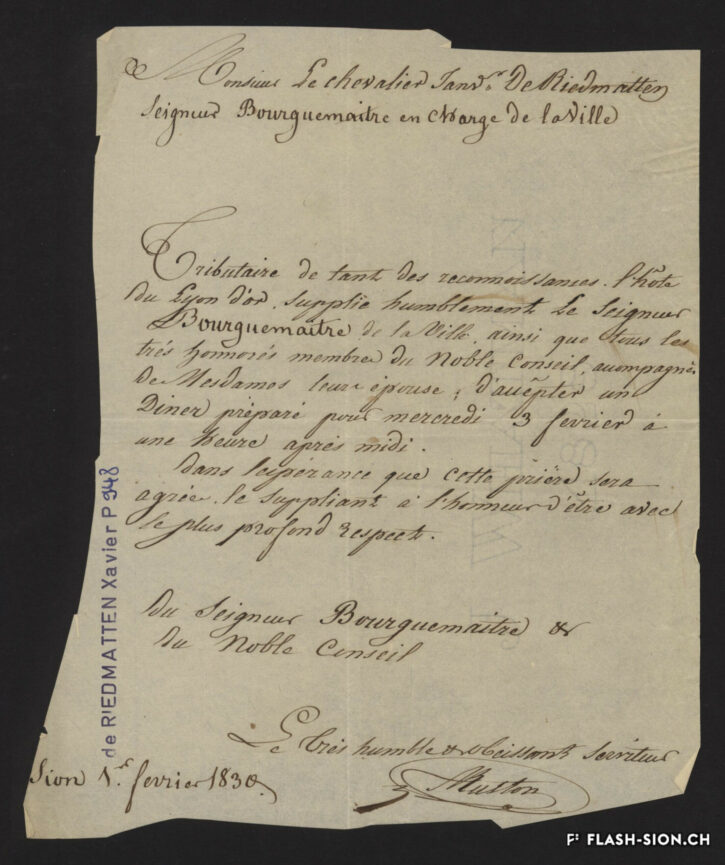 A Monsieur Le chevalier Janvr. De Riedmatten
Seigneur Bourguemaitre en charge de la Ville
Tributaire de tant des reconnoissances. l'hôte
du Lyon d'or, supplie humblement Le Seigneur
Bourguemaitre de la Ville, ainsi que tous les
trés honorés membre du Noble Conseil, accompagnés
de Mesdames leur épouse, d'accêpter un
Diner préparé pour mercredi 3 fevrier à
une heure après midi.
Dans l'espérance que cette prière sera
agrée, le suppliant a l'honneur d'être avec
le plus profond respect.
du Seigneur Bourguemaitre &
du Noble Conseil
Le très humble & obeissant Serviteur
Muston
Sion 1r. fevrier 1830.
de RIEDMATTEN Xavier P 948
FLASH-SION.CH